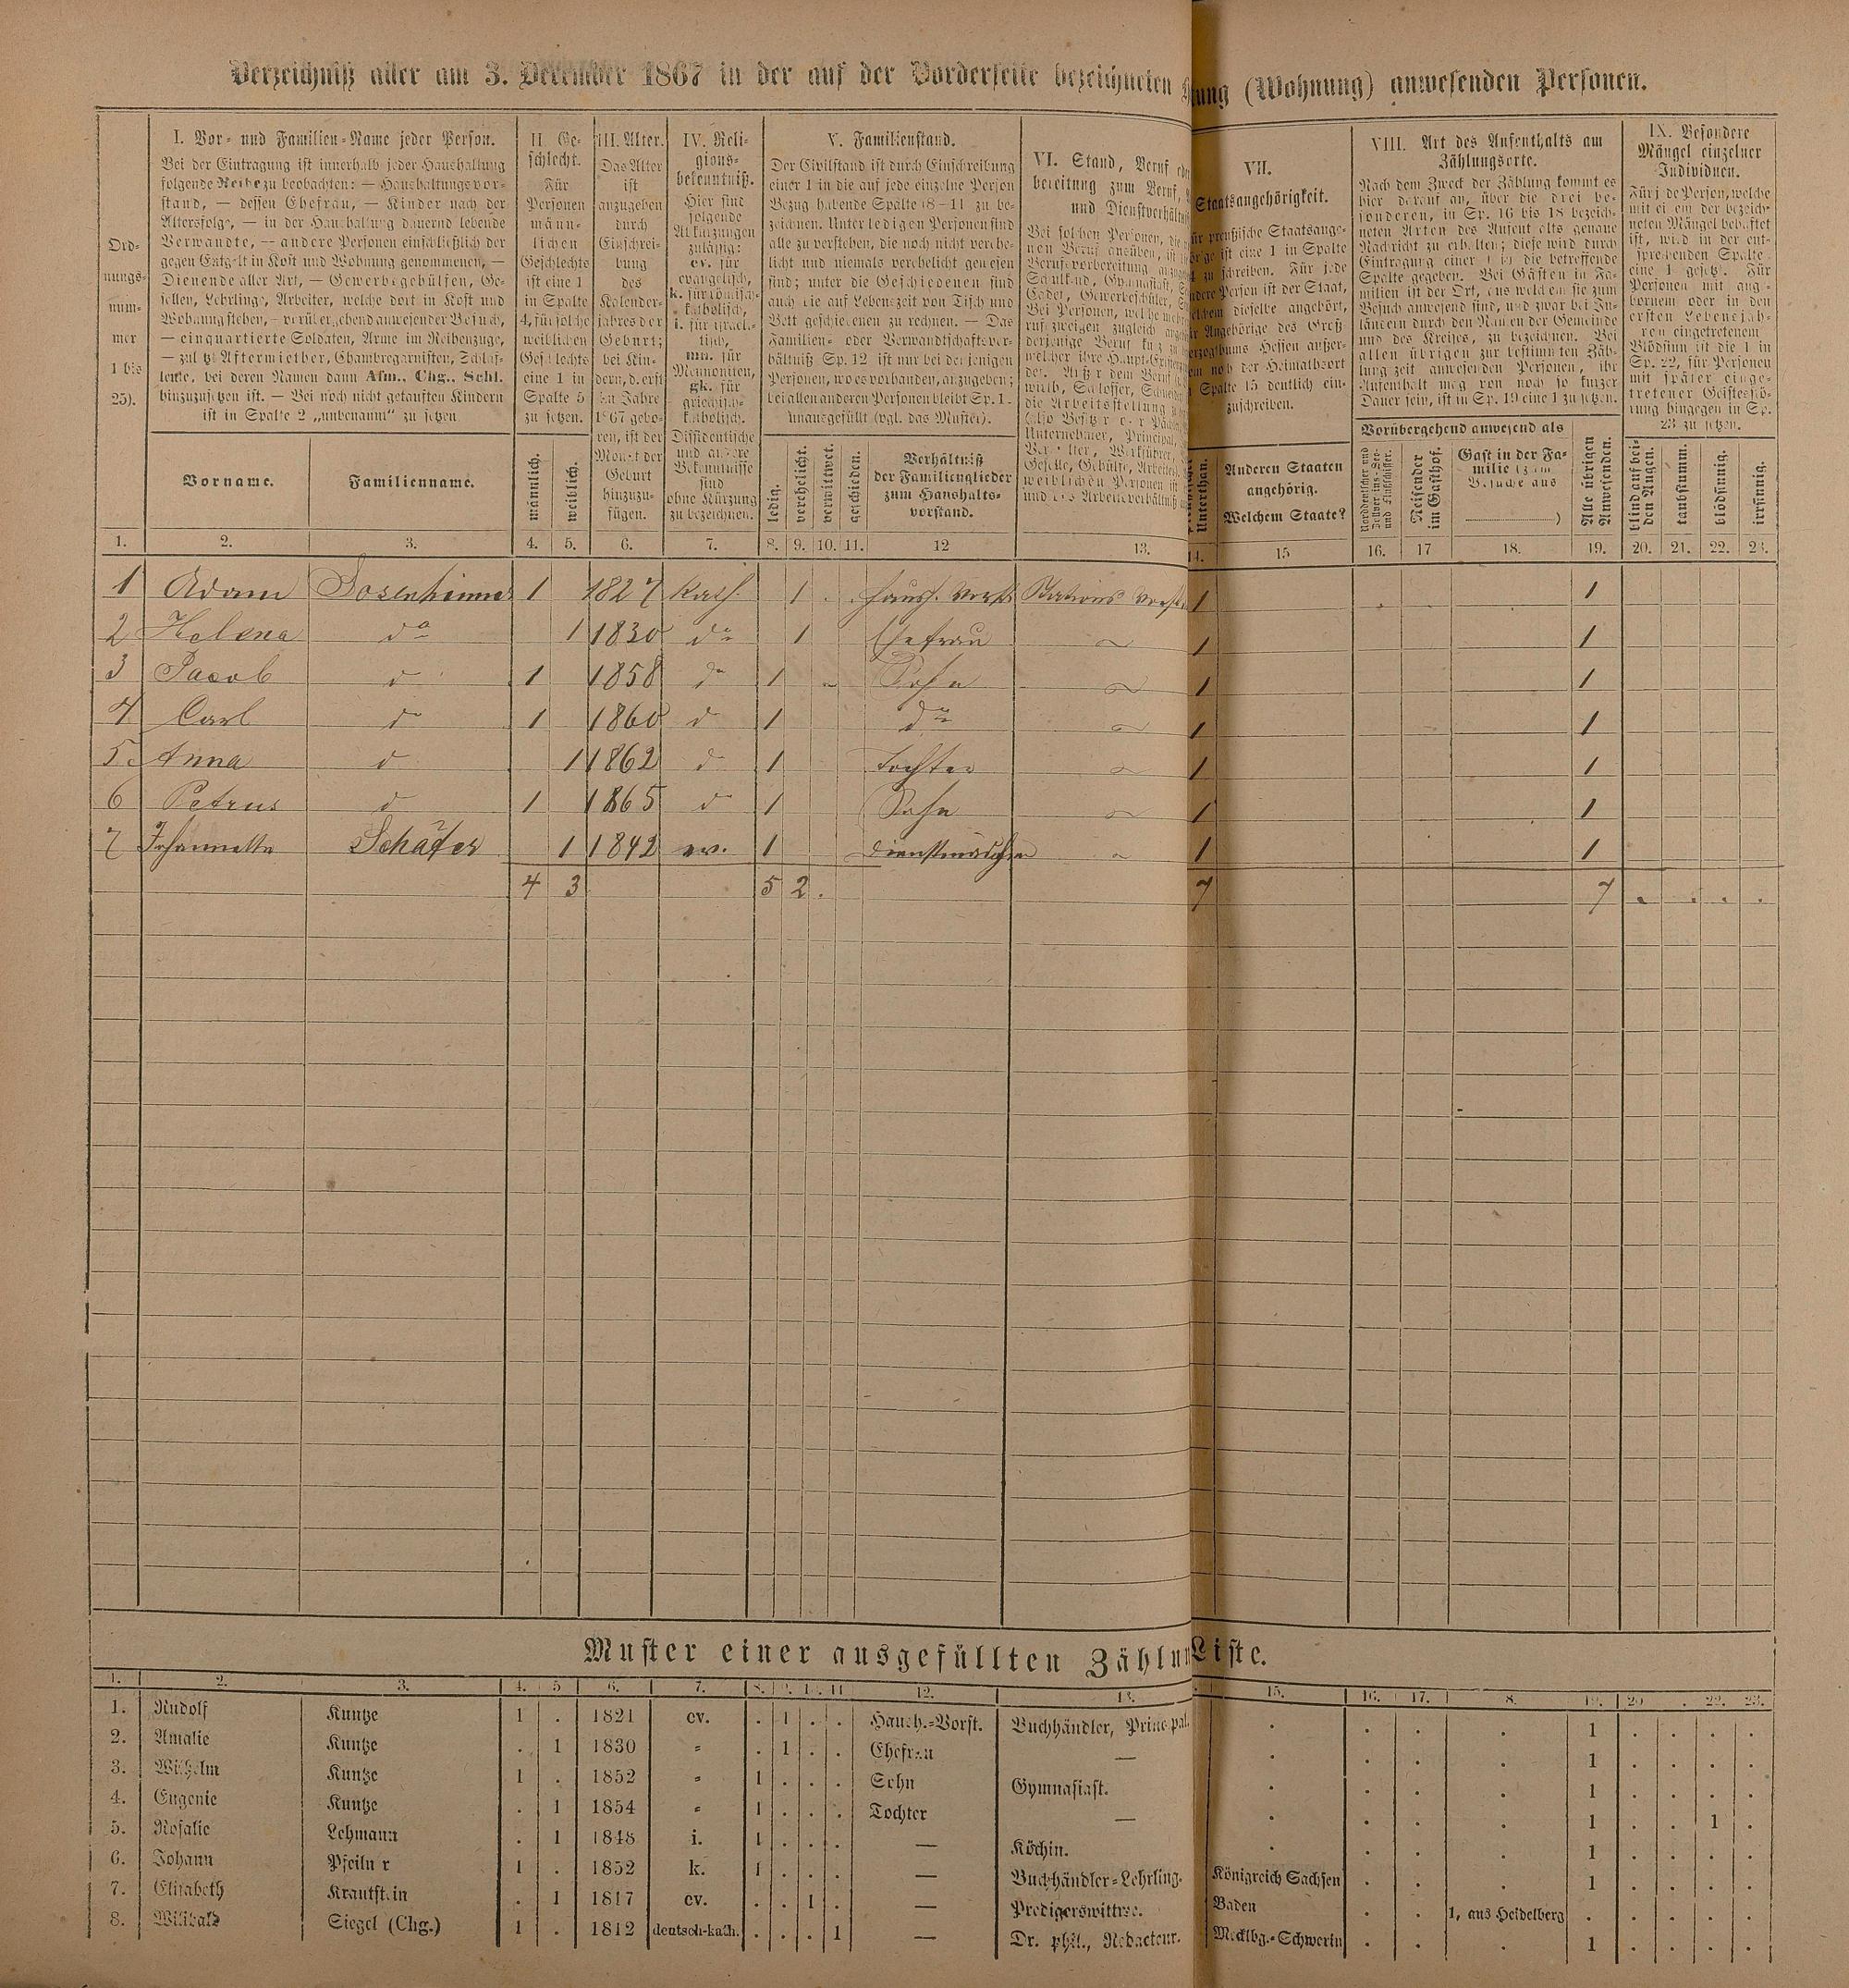 Verzeichniß aller am 3. December 1867 in der auf der Vorderseite bezeichneten ung (Wohnung) anwesenden Personen.
Ord-
nungs-
num-
mer
1 bis
25).
I. Vor- und Familien-Name jeder Person.
Bei der Eintragung ist innerhalb jeder Haushaltung
folgende Reihe zu beobachten: — Haushaltungsvor-
stand, — dessen Ehefrau, — Kinder nach der
Altersfolge, — in der Haushaltung dauernd lebende
Verwandte, — andere Personen einschließlich der
gegen Entgelt in Kost und Wohnung genommenen, —
Dienende aller Art, — Gewerbsgehülfen, Ge-
sellen, Lehrlinge, Arbeiter, welche dort in Kost und
Wohnung stehen, — vorübergehend anwesender Besuch,
— einquartierte Soldaten, Arme im Reihenzuge,
— zuletzt Aftermiether, Chambregarnisten, Schlaf-
leute, bei deren Namen dann Afm., Chg., Schl.
hinzuzusetzen ist. — Bei noch nicht getauften Kindern
ist in Spalte 2 „unbenannt“ zu setzen
Vorname.
Familienname.
II. Ge-
schlecht.
Für
Personen
männ-
lichen
Geschlechts
ist eine 1
in Spalte
4, für solche
weiblichen
Geschlechts
eine 1 in
Spalte 5
zu setzen.
männlich.
weiblich.
III. Alter.
Das Alter
ist
anzugeben
durch
Einschrei-
bung
des
Kalender-
jahres der
Geburt;
bei Kin-
dern, d. erst
im Jahre
1867 gebo-
ren, ist der
Monat der
Geburt
hinzuzu-
fügen.
IV. Reli-
gions-
bekenntniß.
Hier sind
folgende
Abkürzungen
zulässig:
ev. für
evangelisch,
k. für römisch-
katholisch,
i. für israeli-
tisch,
mn. für
Mennoniten,
gk. für
griechisch-
katholisch.
Dissidentische
und andere
Bekenntnisse
sind
ohne Kürzung
zu bezeichnen.
V. Familienstand.
Der Civilstand ist durch Einschreibung
einer 1 in die auf jede einzelne Person
Bezug habende Spalte (8—11 zu be-
zeichnen. Unter ledigen Personen sind
alle zu verstehen, die noch nicht verehe-
licht und niemals verehelicht gewesen
sind; unter die Geschiedenen sind
auch die auf Lebenszeit von Tisch und
Bett geschiedenen zu rechnen. — Das
Familien- oder Verwandtschaftsver-
hältniß Sp. 12 ist nur bei denjenigen
Personen, wo es vorhanden, anzugeben;
bei allen anderen Personen bleibt Sp. 1
unausgefüllt (vgl. das Muster).
ledig.
verehelicht.
verwittwet.
geschieden.
Verhältniß
der Familienglieder
zum Haushalts-
vorstand.
VI. Stand, Beruf
bereitung zum Beruf,
und Dienstverhält
Bei solchen Personen, die
nen Beruf ausüben, ist
Berufsvorbereitung
VII.
Staatsangehörigkeit.
für preußische Staatsange-
ist eine 1 in Spalte
zu schreiben. Für jede
andere Person ist der Staat,
welchem dieselbe angehört,
Angehörige des Groß-
herzogthums Hessen außer-
dem noch der Heimathsort
Spalte 15 deutlich ein-
zuschreiben.
Unterthan.
Anderen Staaten
angehörig.
Welchem Staate?
VIII. Art des Aufenthalts am
Zählungsorte.
Nach dem Zweck der Zählung kommt es
hier darauf an, über die drei be-
sonderen, in Sp. 16 bis 18 bezeich-
neten Arten des Aufenthalts genaue
Nachricht zu erhalten; diese wird durch
Eintragung einer 1 in die betreffende
Spalte gegeben. Bei Gästen in Fa-
milien ist der Ort, aus welchem sie zum
Besuch anwesend sind, und zwar bei In-
ländern durch den Namen der Gemeinde
und des Kreises, zu bezeichnen. Bei
allen übrigen zur bestimmten Zäh-
lungszeit anwesenden Personen, ihr
Aufenthalt mag von noch so kurzer
Dauer sein, ist in Sp. 19 eine 1 zu setzen.
Vorübergehend anwesend als
Reisender
im Gasthof.
Gast in der Fa-
milie (zum
Besuche aus
)
Alle übrigen
Anwesenden.
IX. Besondere
Mängel einzelner
Individuen.
Für jede Person, welche
mit einem der bezeich-
neten Mängel behaftet
ist, wird in der ent-
sprechenden Spalte
eine 1 gesetzt. Für
Personen mit ange-
bornem oder in den
ersten Lebensjah-
ren eingetretenem
Blödsinn ist die 1 in
Sp. 22, für Personen
mit später einge-
tretener Geistesstö-
rung hingegen in Sp.
23 zu setzen.
blind auf bei-
den Augen.
taubstumm.
blödsinnig.
irrsinnig.
1. 2. 3. 4. 5. 6. 7. 8. 9. 10. 11. 12 13. 14. 15 16. 17 18. 19. 20. 21. 22. 23.
1 Adam 1 1827 Kath. 1 Haush. Vorst. Stations Vorst 1 1
2 Helena do 1 1830 do 1 Ehefrau 1 1
3 Jacob d 1 1858 do 1 Sohn 1 1
4 Carl do 1 1860 d 1 do 1 1
5 Anna d 1 1862 d 1 Tochter 1 1
6 Petrus d 1 1865 d 1 Sohn 1 1
7 Johannetta Schäfer 1 1842 ev. 1 Dienstmädchen 1 1
4 3 5 2 7 7
Muster einer ausgefüllten Zählun Liste.
1. 2. 3. 4. 5 6. 7. 8. 9. 10. 11 12. 13. 15. 16. 17. 8. 19. 20 . 22. 23.
1. Rudolf Kuntze 1 . 1821 ev. . 1 . . Haush.-Vorst. Buchhändler, Principal. . . . . 1 . . . .
2. Amalie Kuntze . 1 1830 „ . 1 . . Ehefrau — . . . . 1 . . . .
3. Wilhelm Kuntze 1 . 1852 „ 1 . . . Sohn Gymnasiast. . . . . 1 . . . .
4. Eugenie Kuntze . 1 1854 „ 1 . . . Tochter — . . . . 1 . . 1 .
5. Rosalie Lehmann . 1 1848 i. 1 . . . — Köchin. . . . . 1 . . . .
6. Johann Pfeilner 1 . 1852 k. 1 . . . — Buchhändler-Lehrling. Königreich Sachsen . . . 1 . . . .
7. Elisabeth Krautstein . 1 1817 ev. . . 1 . — Predigerswittwe. Baden . . 1, aus Heidelberg . . . . .
8. Willibald Siegel (Chg.) 1 . 1812 deutsch-kath. . . . 1 — Dr. phil., Redacteur. Mecklbg.-Schwerin . . . 1 . . . .